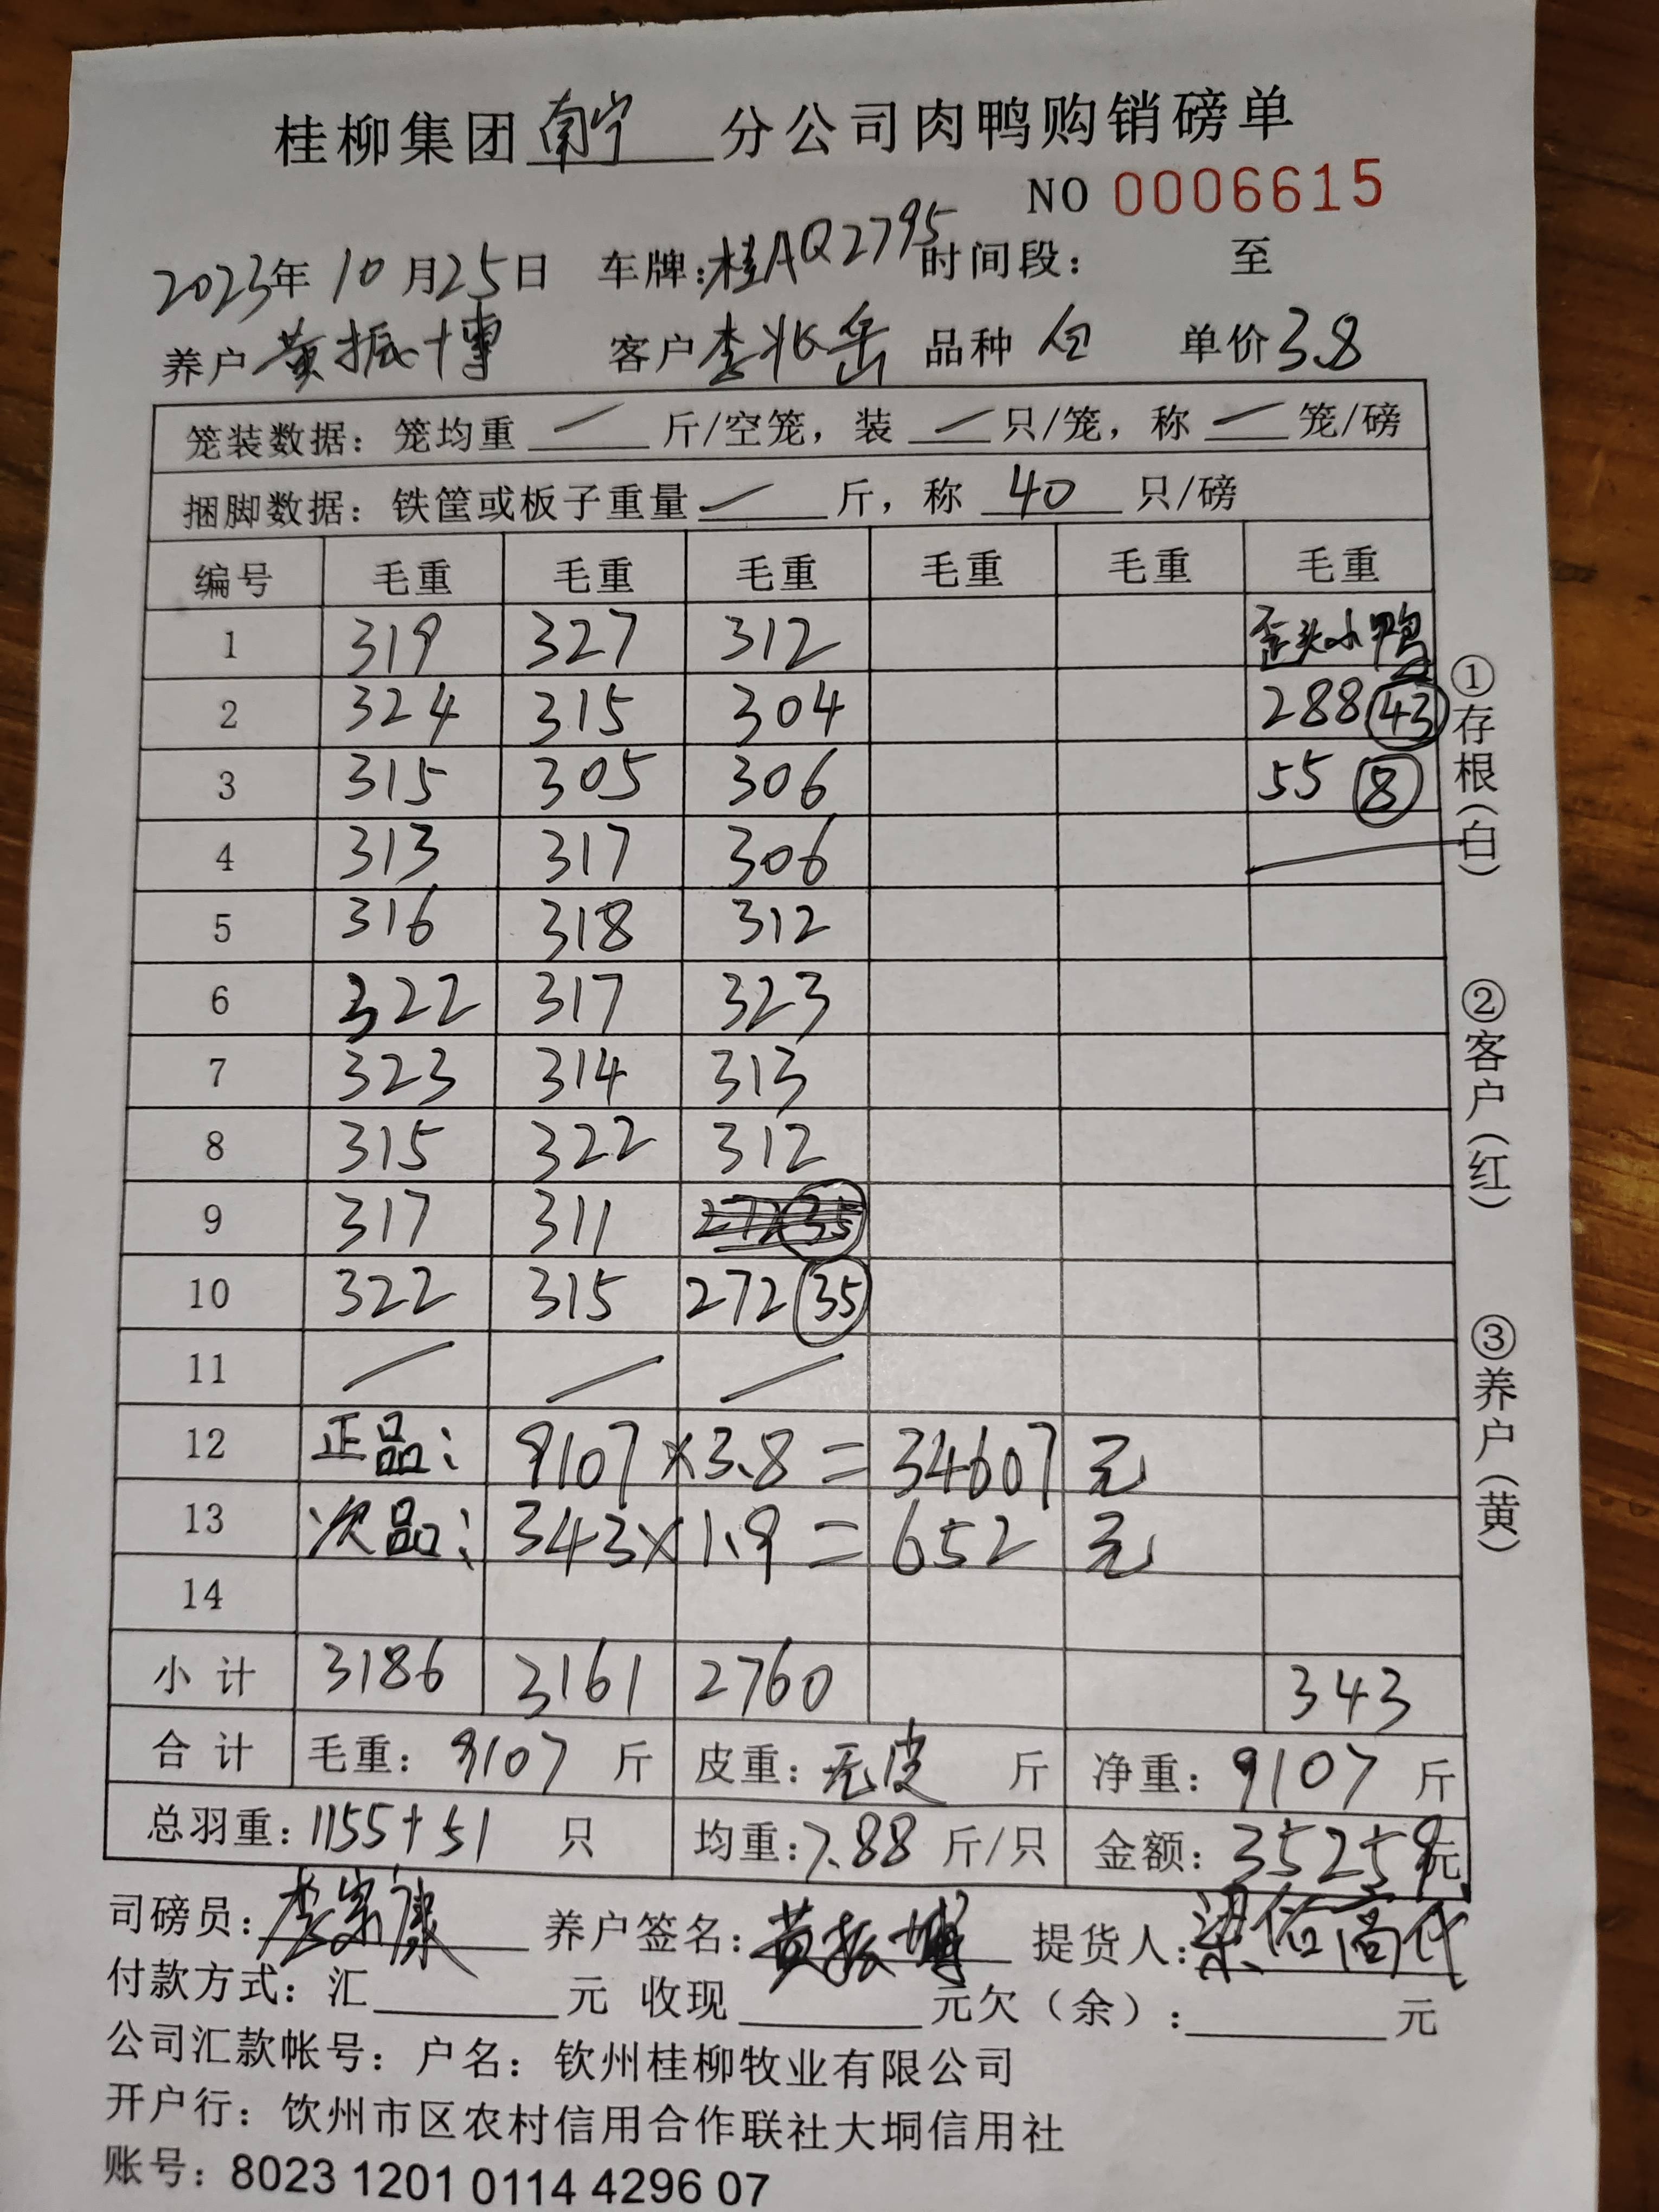 桂柳集团南宁分公司肉鸭购销磅单
NO 0006615
2023年10月25日 车牌:桂AQ2795 时间段: 至
养户 黄振博 客户 李兆岳 品种 白 单价3.8
笼装数据: 笼均重 / 斤/空笼, 装 / 只/笼, 称 / 笼/磅
捆脚数据: 铁筐或板子重量 / 斤, 称 40 只/磅
编号 毛重 毛重 毛重 毛重 毛重 毛重
1 319 327 312 歪头小鸭
2 324 315 304 288 43
3 315 305 306 55 8
4 313 317 306
5 316 318 312
6 322 317 323
7 323 314 313
8 315 322 312
9 317 311 272 35
10 322 315 272 35
11 / / /
12 正品: 9107×3.8=34607元
13 次品: 343×1.9=652元
14
小计 3186 3161 2760 343
合计 毛重: 9107 斤 皮重: 无皮 斤 净重: 9107 斤
总羽重: 1155+51 只 均重: 7.88 斤/只 金额: 35259元
司磅员: 李宗康 养户签名: 黄振博 提货人: 梁佑尚代
付款方式: 汇 元 收现 元欠(余): 元
公司汇款帐号: 户名: 钦州桂柳牧业有限公司
开户行: 饮州市区农村信用合作联社大垌信用社
账号: 8023 1201 0114 4296 07
①存根(白) ②客户(红) ③养户(黄)